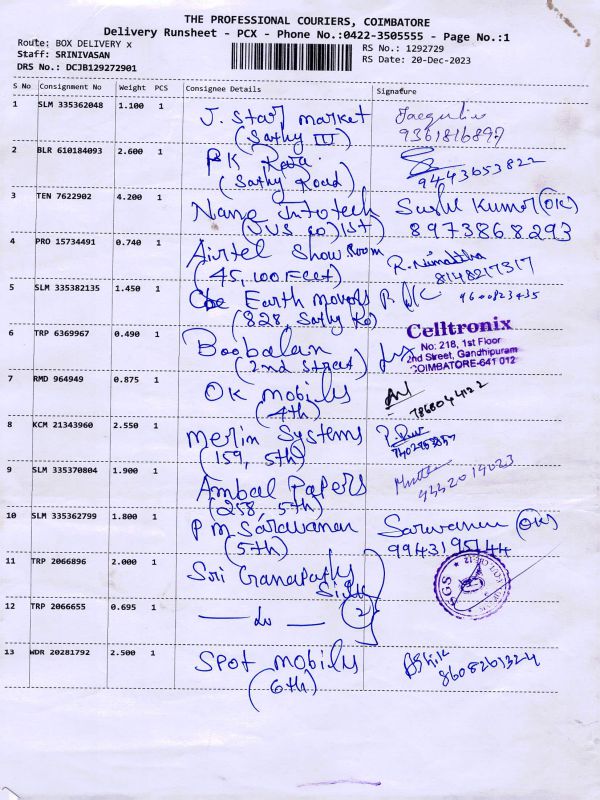 THE PROFESSIONAL COURIERS, COIMBATORE
Delivery Runsheet - PCX - Phone No.:0422-3505555 - Page No.:1
Route: BOX DELIVERY x
Staff: SRINIVASAN
DRS No.: DCJB129272901
RS No.: 1292729
RS Date: 20-Dec-2023
S No Consignment No Weight PCS Consignee Details Signature
1 SLM 335362048 1.100 1 J. Star market
(Sathy III)
9361816897
2 BLR 610184093 2.600 1 PK
(Sathy Road)
9443653822
3 TEN 7622902 4.200 1 Nano Infotech Sushil Kumar (OK)
(VVS 1st) 8973868293
4 PRO 15734491 0.740 1 Airtel Show Room
(45, 100 Feet) R. Nimaltha
8148217317
5 SLM 335382135 1.450 1 Earth movers
(828, Sathy Rd) 9600823435
6 TRP 6369967 0.490 1 Boobalan
(2nd Street)
Celltronix
No: 218, 1st Floor
2nd Street, Gandhipuram
COIMBATORE-641 012
7 RMD 964949 0.875 1 OK mobiles
(4th) 7868044122
8 KCM 21343960 2.550 1 Merlin Systems
(159, 5th)
9 SLM 335370804 1.900 1 Ambal Papers
(258, 5th)
10 SLM 335362799 1.800 1 P M Saravanan Saravanan (OK)
(5th) 9943195144
11 TRP 2066896 2.000 1 Sri Ganapathy
Silks
SGS
12 TRP 2066655 0.695 1 — do — (2)
13 WDR 20281792 2.500 1 Spot mobiles
(6th) 8608261324